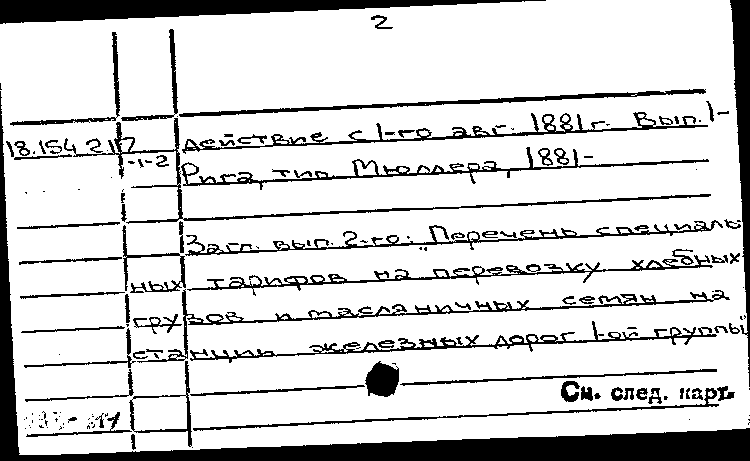 2
18.154.2.117 действие с 1-го авг. 1881 г. Вып. 1-
-1-2 Рига, тип. Мюллера, 1881-
Загл. вып. 2-го: „Перечень специаль
ных тарифов на перевозку хлебных
грузов и масляничных семян на
станции железных дорог 1-ой группы"
См. след. карт.